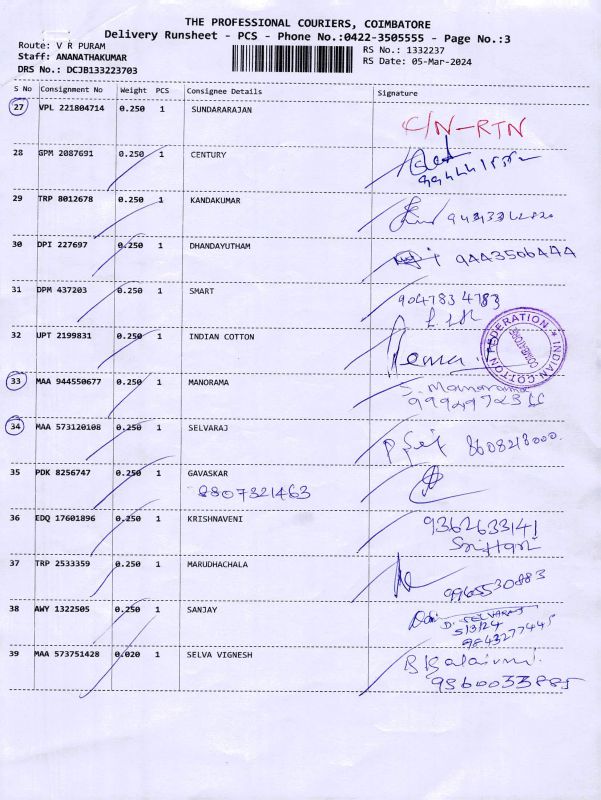 THE PROFESSIONAL COURIERS, COIMBATORE
Delivery Runsheet - PCS - Phone No.:0422-3505555 - Page No.:3
Route: V R PURAM
RS No.: 1332237
Staff: ANANATHAKUMAR
RS Date: 05-Mar-2024
DRS No.: DCJB133223703
S No Consignment No Weight PCS Consignee Details Signature
27 VPL 221804714 0.250 1 SUNDARARAJAN C/N-RTN
28 GPM 2087691 0.250 1 CENTURY
29 TRP 8012678 0.250 1 KANDAKUMAR
30 DPI 227697 0.250 1 DHANDAYUTHAM 9443506444
31 DPM 437203 0.250 1 SMART 9047834783
32 UPT 2199831 0.250 1 INDIAN COTTON
INDIAN COTTON FEDERATION * COIMBATORE *
33 MAA 944550677 0.250 1 MANORAMA S. Manorama
34 MAA 573120108 0.250 1 SELVARAJ 8608218000.
35 PDK 8256747 0.250 1 GAVASKAR
8807321463
36 EDQ 17601896 0.250 1 KRISHNAVENI 9362633141
37 TRP 2533359 0.250 1 MARUDHACHALA 9965530883
38 AWY 1322505 0.250 1 SANJAY D. SELVARAJ
5/3/24
9843277445
39 MAA 573751428 0.020 1 SELVA VIGNESH
9360033885